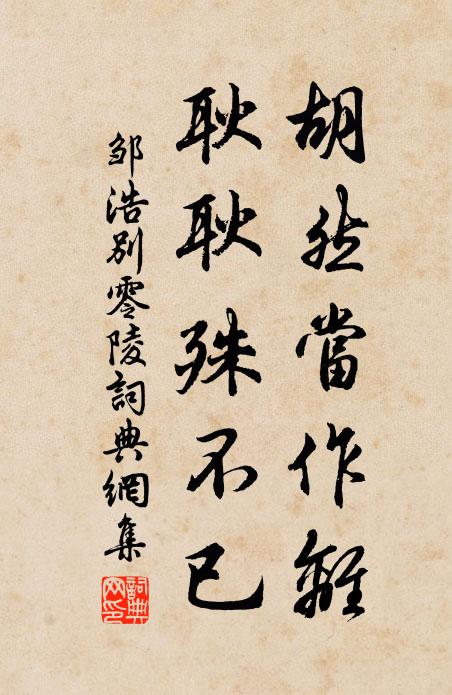 胡然當作離
耿耿殊不已
邹浩别零陵詞典網集
詞典網印